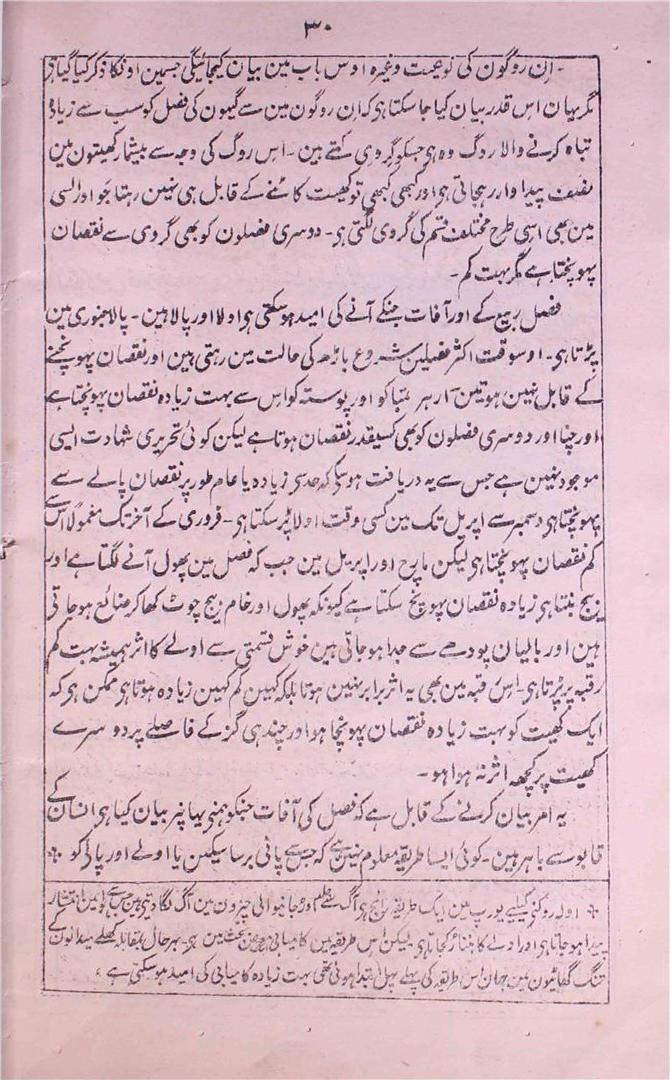 ۳۰
- ان روگون کی نوعیت وغیرہ اوس باب مین بیان کیجائیگی جسمین اونکا ذکر کیا گیا ہی
مگر یہان اس قدر بیان کیا جا سکتا ہی کہ ان روگون مین سے گیہون کی فصل کو سب سے زیادہ
تباہ کرنے والا روگ وہ ہی جسکو گروی کہتے ہین - اس روگ کی وجہ سے بیشمار کھیتون مین
نصف پیدا وار رہجاتی ہی اور کبھی کبھی تو کھیت کاٹنے کے قابل ہی نہین رہتا جو اور السی
مین بھی اسی طرح مختلف قسم کی گروی لگتی ہی - دوسری فصلون کو بھی گروی سے نقصان
پہونچتا ہے مگر بہت کم -
فصل ربیع کے اور آفات جنکے آنے کی امید ہو سکتی ہی اولا اور پالا ہین - پالا جنوری مین
پڑتا ہی - اوسوقت اکثر فصلین شروع باڑھ کی حالت مین رہتی ہین اور نقصان پہونچنے
کے قابل نہین ہوتین - ارہر تمباکو اور پوستہ کو اس سے بہت زیادہ نقصان پہونچتا ہے
اور چنا اور دوسری فصلون کو بھی کسیقدر نقصان ہوتا ہے لیکن کوئی تحریری شہادت ایسی
موجود نہین ہے جس سے یہ دریافت ہو سکے کہ حد سی زیادہ یا عام طور پر نقصان پالے سے
پہونچتا ہی دسمبر سے اپریل تک مین کسی وقت اولا پڑ سکتا ہی - فروری کے آخر تک معمولاً اس سے
کم نقصان پہونچتا ہی لیکن مارچ اور اپریل مین جب کہ فصل مین پھول آنے لگتا ہے اور
بیج بنتا ہی زیادہ نقصان پہونچ سکتا ہے کیونکہ پھول اور خام بیج چوٹ کھا کر ضائع ہو جاتی
ہین اور بالیان پودھے سے جدا ہو جاتی ہین خوش قسمتی سے اولے کا اثر ہمیشہ بہت کم
رقبہ پر پڑتا ہی - اس رقبہ مین بھی یہ اثر برابر نہین ہوتا بلکہ کہین کم کہین زیادہ ہوتا ہی ممکن ہی کہ
ایک کھیت کو بہت زیادہ نقصان پہونچا ہو اور چند ہی گز کے فاصلے پر دوسرے
کھیت پر کچھ اثر نہ ہوا ہو -
یہ امر بیان کرنے کے قابل ہے کہ فصل کی آفات جنکو ہمنے یہاں پر بیان کیا ہی انسان کے
قابو سے باہر ہین - کوئی ایسا طریقہ معلوم نہین ہے کہ جس سے پانی برسا سکین یا اولے اور پالی کو ٭
٭ اولہ روکنی کیلیے یورپ مین ایک طریقہ رائج ہی آگ سے اوڑ جانیوالی چیزون مین آگ لگا دیتی ہین جس سے ہوا مین انتشار
پیدا ہو جاتا ہی اور اولے کا بننا رک جاتا ہی لیکن اس طریقہ مین کامیابی بحث مین ہی - بہر حال بمقابلہ کھلے میدانون کے
تنگ گھاٹیون مین جہان اس طریقہ کی پہلے پہل ابتدا ہوئی تھی بہت زیادہ کامیابی کی امید ہو سکتی ہے ؛